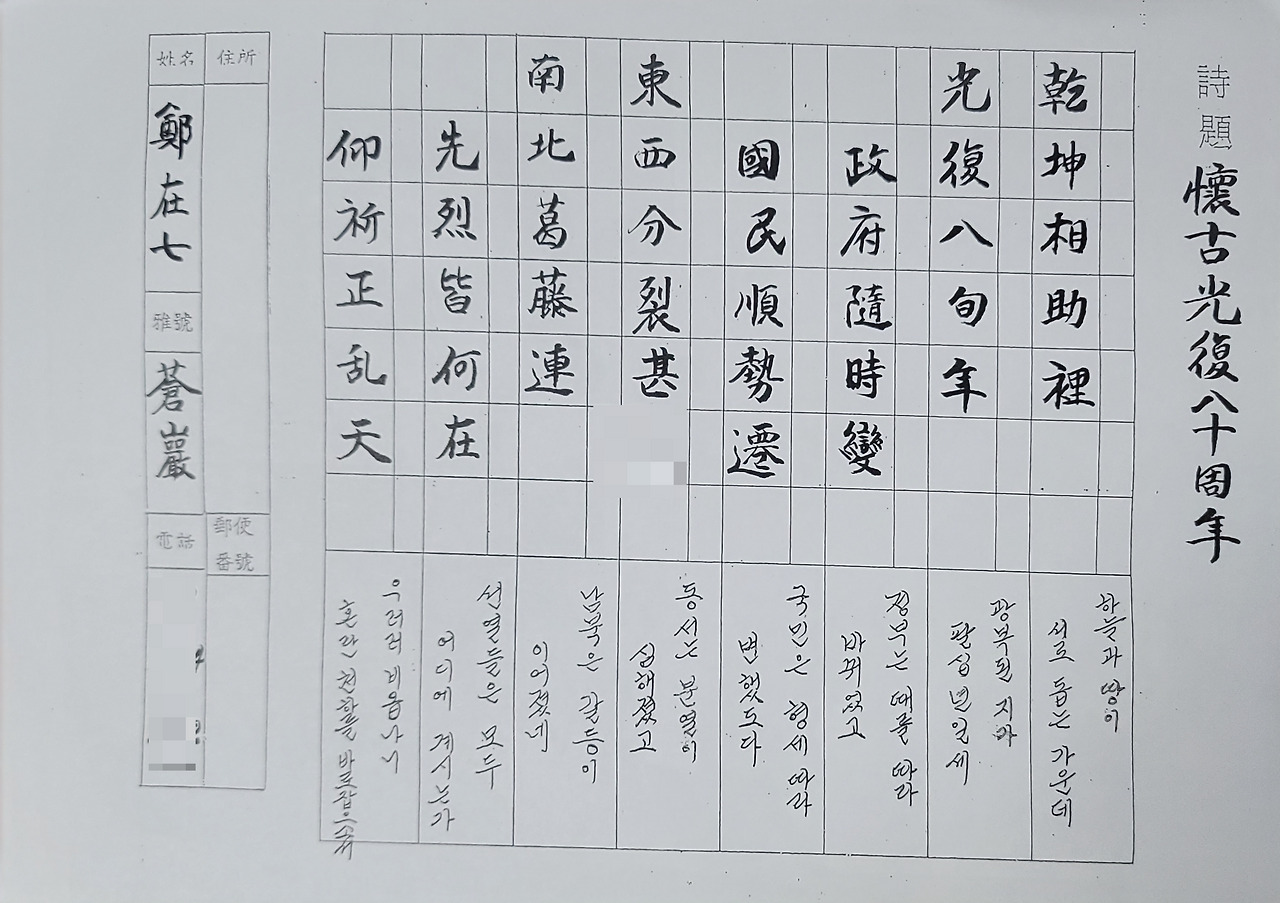 詩題 懷古光復八十周年
乾坤相助裡
하늘과 땅이
서로 돕는 가운데
光復八旬年
광복된 지가
팔십년일세
政府隨時變
정부는 때를 따라
바뀌었고
國民順勢遷
국민은 형세 따라
변했도다
東西分裂甚
동서는 분열이
심해졌고
南北葛藤連
남북은 갈등이
이어졌네
先烈皆何在
선열들은 모두
어디에 계시는가
仰祈正乱天
우러러 비옵나니
혼란 천하를 바로잡으소서
住所
郵便
番號
姓名 鄭在七
雅號 蒼巖
電話